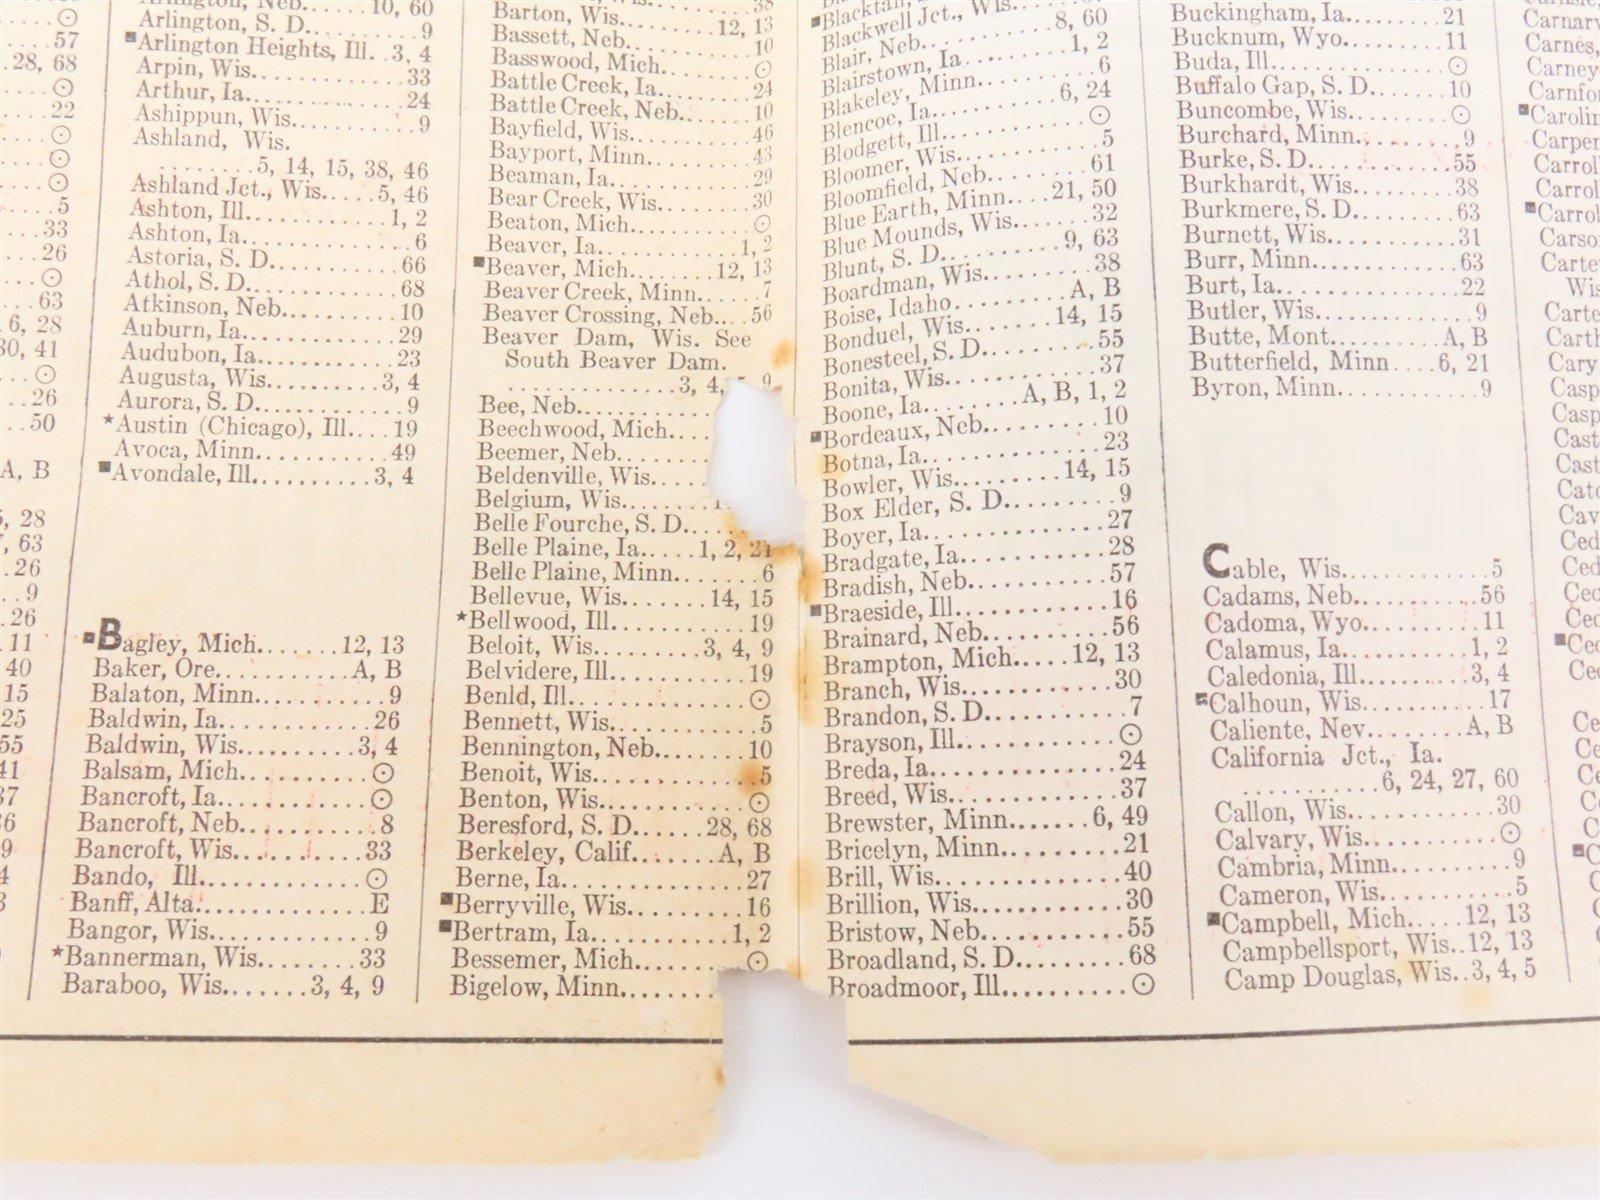 57
28, 68
⊙
22
⊙
⊙
⊙
5
33
26
⊙
63
6, 28
30, 41
⊙
26
50
A, B
28
63
26
9
26
11
40
15
25
55
Arlington, Neb. 10, 60
Arlington, S. D. 9
■Arlington Heights, Ill. 3, 4
Arpin, Wis. 33
Arthur, Ia. 24
Ashippun, Wis. 9
Ashland, Wis.
5, 14, 15, 38, 46
Ashland Jct., Wis. 5, 46
Ashton, Ill. 1, 2
Ashton, Ia. 6
Astoria, S. D. 66
Athol, S. D. 68
Atkinson, Neb. 10
Auburn, Ia. 29
Audubon, Ia. 23
Augusta, Wis. 3, 4
Aurora, S. D. 9
★Austin (Chicago), Ill. 19
Avoca, Minn. 49
■Avondale, Ill. 3, 4
■Bagley, Mich. 12, 13
Baker, Ore. A, B
Balaton, Minn. 9
Baldwin, Ia. 26
Baldwin, Wis. 3, 4
Balsam, Mich. ⊙
Bancroft, Ia. ⊙
Bancroft, Neb. 8
Bancroft, Wis. 33
Bando, Ill. ⊙
Banff, Alta. E
Bangor, Wis. 9
★Bannerman, Wis. 33
Baraboo, Wis. 3, 4, 9
Barton, Wis. 12, 13
Bassett, Neb. 10
Basswood, Mich. ⊙
Battle Creek, Ia. 24
Battle Creek, Neb. 10
Bayfield, Wis. 46
Bayport, Minn. 43
Beaman, Ia. 29
Bear Creek, Wis. 30
Beaton, Mich. ⊙
Beaver, Ia. 1, 2
■Beaver, Mich. 12, 13
Beaver Creek, Minn. 7
Beaver Crossing, Neb. 56
Beaver Dam, Wis. See
South Beaver Dam.
3, 4, 9
Bee, Neb.
Beechwood, Mich.
Beemer, Neb.
Beldenville, Wis.
Belgium, Wis.
Belle Fourche, S. D.
Belle Plaine, Ia. 1, 2, 21
Belle Plaine, Minn. 6
Bellevue, Wis. 14, 15
★Bellwood, Ill. 19
Beloit, Wis. 3, 4, 9
Belvidere, Ill. 19
Benld, Ill. ⊙
Bennett, Wis. 5
Bennington, Neb. 10
Benoit, Wis. 5
Benton, Wis. ⊙
Beresford, S. D. 28, 68
Berkeley, Calif. A, B
Berne, Ia. 27
■Berryville, Wis. 16
■Bertram, Ia. 1, 2
Bessemer, Mich. ⊙
Bigelow, Minn.
Blackwell Jct., Wis.
Blair, Neb. 8, 60
Blairstown, Ia. 1, 2
Blakeley, Minn. 6
Blencoe, Ia. 6, 24
Blodgett, Ill. ⊙
Bloomer, Wis. 5
Bloomfield, Neb. 61
Blue Earth, Minn. 21, 50
Blue Mounds, Wis. 32
Blunt, S. D. 9, 63
Boardman, Wis. 38
Boise, Idaho A, B
Bonduel, Wis. 14, 15
Bonesteel, S. D. 55
Bonita, Wis. 37
Boone, Ia. A, B, 1, 2
■Bordeaux, Neb. 10
Botna, Ia. 23
Bowler, Wis. 14, 15
Box Elder, S. D. 9
Boyer, Ia. 27
Bradgate, Ia. 28
Bradish, Neb. 57
■Braeside, Ill. 16
Brainard, Neb. 56
Brampton, Mich. 12, 13
Branch, Wis. 30
Brandon, S. D. 7
Brayson, Ill. ⊙
Breda, Ia. 24
Breed, Wis. 37
Brewster, Minn. 6, 49
Bricelyn, Minn. 21
Brill, Wis. 40
Brillion, Wis. 30
Bristow, Neb. 55
Broadland, S. D. 68
Broadmoor, Ill. ⊙
Buckingham, Ia. 21
Bucknum, Wyo. 11
Buda, Ill. ⊙
Buffalo Gap, S. D. 10
Buncombe, Wis. ⊙
Burchard, Minn. 9
Burke, S. D. 55
Burkhardt, Wis. 38
Burkmere, S. D. 63
Burnett, Wis. 31
Burr, Minn. 63
Burt, Ia. 22
Butler, Wis. 9
Butte, Mont. A, B
Butterfield, Minn. 6, 21
Byron, Minn. 9
Cable, Wis. 5
Cadams, Neb. 56
Cadoma, Wyo. 11
Calamus, Ia. 1, 2
Caledonia, Ill. 3, 4
■Calhoun, Wis. 17
Caliente, Nev. A, B
California Jct., Ia.
6, 24, 27, 60
Callon, Wis. 30
Calvary, Wis. ⊙
Cambria, Minn. 9
Cameron, Wis. 5
■Campbell, Mich. 12, 13
Campbellsport, Wis. 12, 13
Camp Douglas, Wis. 3, 4, 5
Carnes,
Carney
■Carolin
Carper
Carrol
Carrol
■Carrol
Carso
Carte
Wis
Carte
Carth
Cary
Casp
Casp
Cast
Cast
Cato
Cav
Ced
Ced
Ced
Ced
■Ced
Ced